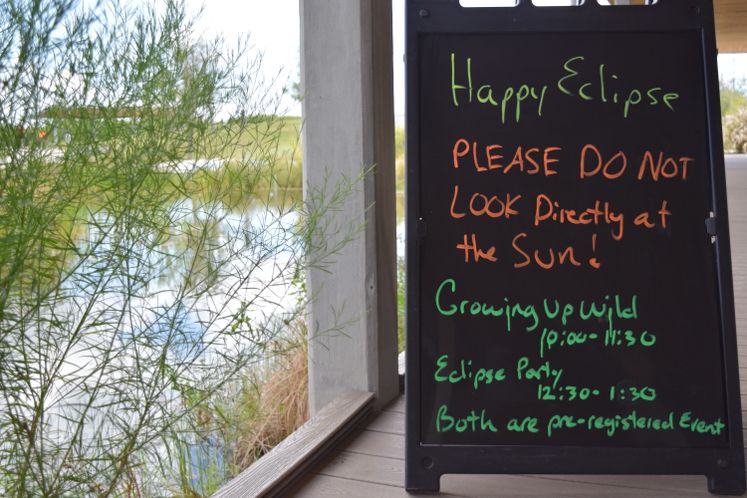 Happy Eclipse
PLEASE DO NOT
LOOK Directly at
the Sun!
Growing Up Wild
10:00-11:30
Eclipse Party
12:30-1:30
Both are pre-registered Event